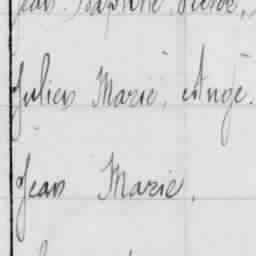 Jean Baptiste
Julien Marie, Ange.
Jean Marie,